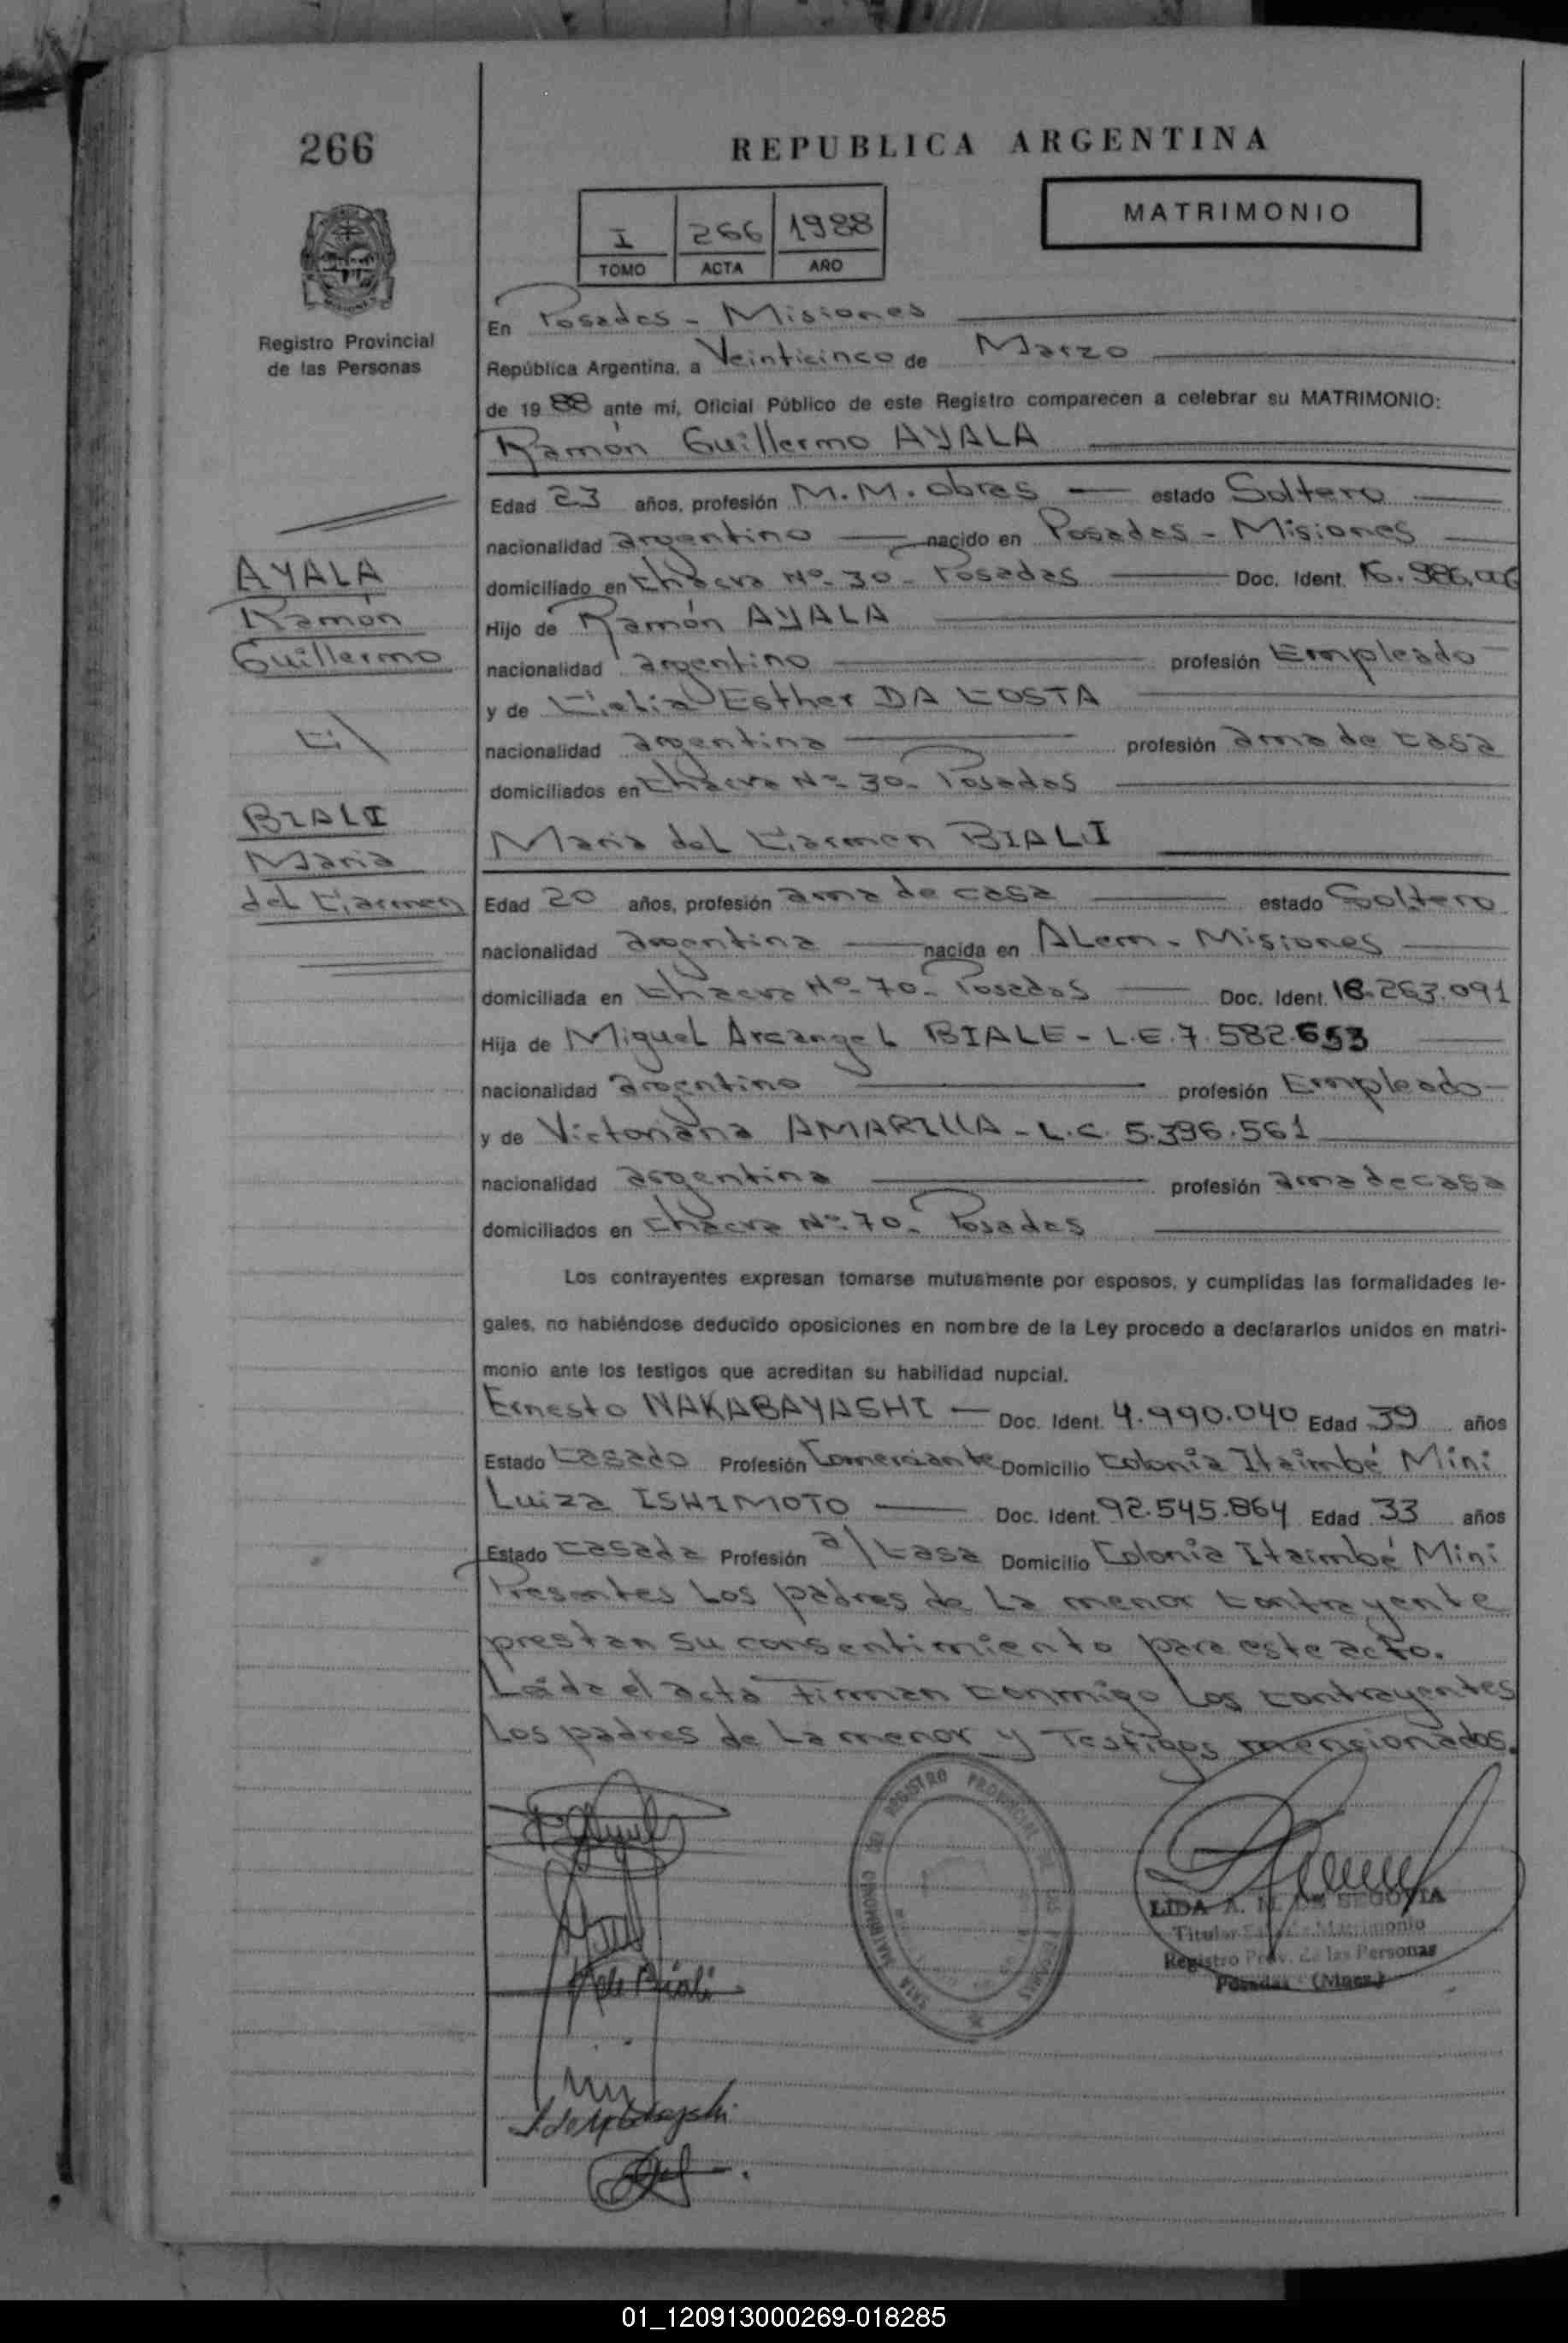 266
REPUBLICA ARGENTINA
MATRIMONIO
I 266 1988
TOMO ACTA AÑO
Registro Provincial
de las Personas
En Posadas - Misiones
República Argentina, a Veinticinco de Marzo
de 1988 ante mí, Oficial Público de este Registro comparecen a celebrar su MATRIMONIO:
Ramón Guillermo AYALA
Edad 23 años, profesión M.M. obras estado Soltero
nacionalidad argentino nacido en Posadas - Misiones
AYALA
domiciliado en Chacra Nº 30 - Posadas Doc. Ident. 16.986.006
Ramón
Hijo de Ramón AYALA
Guillermo
nacionalidad argentino profesión Empleado
y de Esther DA COSTA
C/
nacionalidad argentina profesión ama de casa
domiciliados en Chacra Nº 30 - Posadas
BIALI
María
del Carmen
María del Carmen BIALI
Edad 20 años, profesión ama de casa estado Soltero
nacionalidad argentina nacida en ALem - Misiones
domiciliada en Chacra Nº 70 - Posadas Doc. Ident. 18.263.091
Hija de Miguel Arcangel BIALE - L.E. 7.582.653
nacionalidad argentino profesión Empleado
y de Victoriana AMARILLA - L.C. 5.396.561
nacionalidad argentina profesión ama de casa
domiciliados en Chacra Nº 70 - Posadas
Los contrayentes expresan tomarse mutuamente por esposos, y cumplidas las formalidades le-
gales, no habiéndose deducido oposiciones en nombre de la Ley procedo a declararlos unidos en matri-
monio ante los testigos que acreditan su habilidad nupcial.
Ernesto NAKABAYASHI Doc. Ident. 4.990.040 Edad 39 años
Estado Casado Profesión Comerciante Domicilio Colonia Itaimbé Mini
Luiza ISHIMOTO Doc. Ident. 92.545.864 Edad 33 años
Estado Casada Profesión a/Casa Domicilio Colonia Itaimbé Mini
Presentes Los padres de La menor contrayente
prestan su consentimiento para este acto.
Leída el acta firman conmigo Los contrayentes
Los padres de La menor y Testigos mencionados.
REGISTRO PROVINCIAL DE LAS PERSONAS
LIDA A. M. DE SEGOVIA
Titular Matrimonio
Registro Prov. de las Personas
Posadas (Mnes.)
Biali
01_120913000269-018285